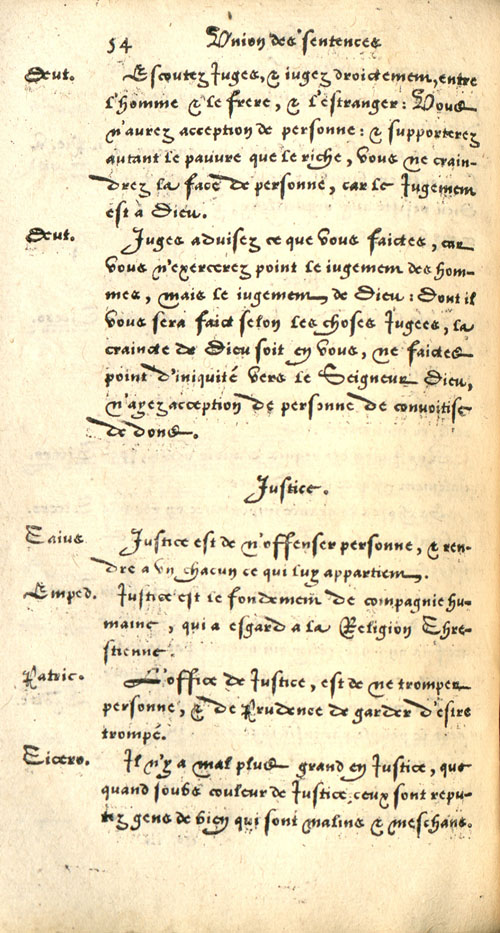 54 Vnion des sentences
Deut. Escoutez Juges, & iugez droictement, entre
l'homme & le frere, & l'estranger: Vous
n'aurez acception de personne: & supporterez
autant le pauure que le riche, vous ne crain-
drez la face de personne, car le Jugement
est à Dieu.
Deut. Juges aduisez ce que vous faictes, car
vous n'exercerez point le iugement des hom-
mes, mais le iugement de Dieu: dont il
vous sera faict selon les choses Jugees, la
craincte de Dieu soit en vous, ne faictes
point d'iniquité vers le Seigneur Dieu,
n'ayez acception de personne de conuoitise
de dons.
Justice.
Caius Justice est de n'offenser personne, & ren-
dre a vn chacun ce qui luy appartient.
Emped. Justice est le fondement de compagnie hu-
maine, qui a esgard a la Religion Chre-
stienne.
Patric. L'office de Justice, est de ne tromper
personne, & de Prudence de garder d'estre
trompé.
Cicero. Il n'y a mal plus grand en Justice, que
quand soubs couleur de Justice, ceux sont repu-
tez gens de bien qui sont malins & meschans.